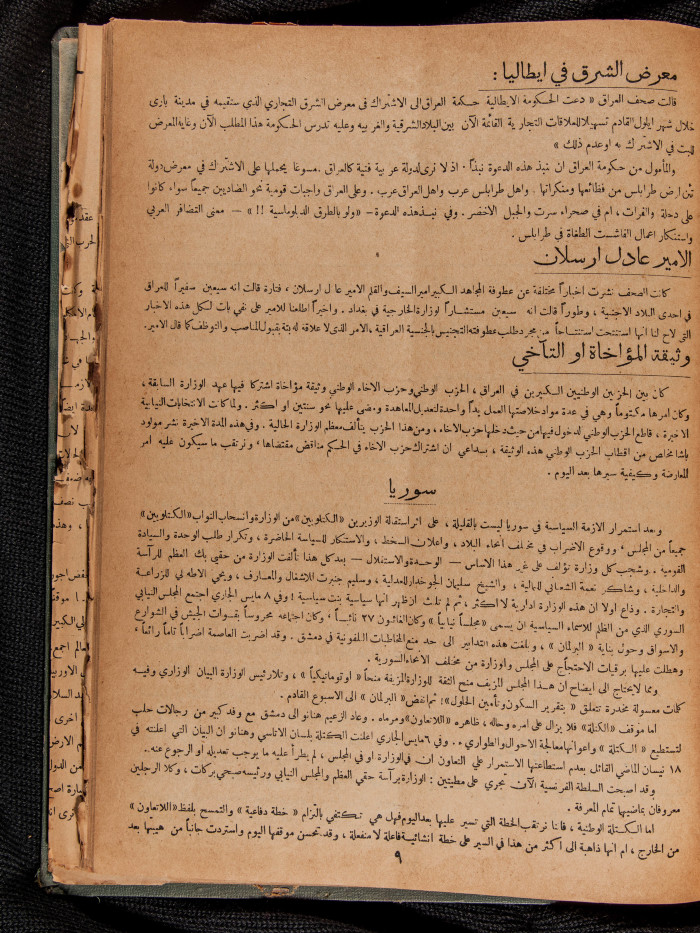 معرض الشرق في ايطاليا :
قالت صحف العراق « دعت الحكومة الايطالية حكمة العراق الى الاشتراك في معرض الشرق التجاري الذي ستقيمه في مدينة بارى
خلال شهر ايلول القادم تسهيلا للعلاقات التجارية القائمة الآن بين البلاد الشرقية والغربيه وعليه تدرس الحكومة هذا المطلب الآن وغاية المعرض
للبت في الاشتراك به او عدم ذلك »
والمأمول من حكومة العراق ان تنبذ هذه الدعوة نبذاً . اذ لا نرى لدولة عربية فتية كالعراق . مسوغا يحملها على الاشتراك في معرض دولة
تئن ارض طرابلس من فظائعها ومنكراتها ، واهل طرابلس عرب واهل العراق عرب . وعلى العراق واجبات قومية نحو الضاديين جميعاً سواء كانوا
على دجلة والفرات ، ام في صحراء سرت والجبل الاخضر . وفي نبذ هذه الدعوة – «ولو بالطرق الدبلوماسية !! » – معنى التضافر العربي
واستنكار اعمال الفاشست الطغاة في طرابلس .
الامير عادل ارسلان
كانت الصحف نشرت اخباراً مختلفة عن عطوفة المجاهد الكبير امير السيف والقلم الامير عادل ارسلان ، فتارة قالت انه سيعين سفيراً للعراق
في احدى البلاد الاجنبية ، وطوراً قالت انه سيعين مستشاراً لوزارة الخارجية في بغداد . واخيراً اطلعنا للامير على نفي بات لكل هذه الاخبار
التي لاح لنا انها استنتجت استنتاجاً من مجرد طلب عطوفته التجنس بالجنسية العراقية ، الامر الذي لا علاقة له بتة بقبول المناصب والتوظف كما قال الامير.
وثيقة المؤاخاة او التآخي
كان بين الحزبين الوطنيين الكبيرين في العراق ، الحزب الوطني وحزب الاخاء الوطني وثيقة مؤاخاة اشتركا فيها عهد الوزارة السابقة ،
وكان امرها مكتوماً وهي في عدة مواد خلاصتها العمل يداً واحدة لتعديل المعاهدة ومضى عليها نحو سنتين او اكثر . ولما كانت الانتخابات النيابية
الاخيرة ، قاطع الحزب الوطني لدخول فيها من حيث دخلها حزب الاخاء ، ومن هذا الحزب يتألف معظم الوزارة الحالية . وفي هذه المدة الاخيرة نشر مولود
باشا مخلص من اقطاب الحزب الوطني هذه الوثيقة ، بداعي ان اشتراك حزب الاخاء في الحكم مناقض مقتضاها ، ونرتقب ما سيكون عليه امر
المعارضة وكيفية سيرها بعد اليوم .
سوريا
وبعد استمرار الازمة السياسية في سوريا ليست بالقليلة ، على اثر استقالة الوزيرين «الكتلويين» من الوزارة وانسحاب النواب «الكتلويين»
جميعاً من المجلس ، ووقوع الاضراب في مختلف انحاء البلاد ، واعلان السخط ، والاستنكار للسياسة الحاضرة ، وتكرار طلب الوحدة والسيادة
القومية . وشجب كل وزارة تؤلف على غير هذا الاساس – الوحدة والاستقلال – بعد كل هذا تألفت الوزارة من حقي بك العظم للرآسة
والداخلية ، وشاكر نعمة الشعباني للمالية ، والشيخ سليمان الجوخدار للعدلية ، وسليم جنبرت للاشغال والمعارف ، ويحي الاطه لي للزراعة
والتجارة . وذاع اولا ان هذه الوزارة ادارية لا اكثر ، ثم لم تلبث ان ظهر انها سياسية بنت سياسية ! وفي ٨ مايس الجاري اجتمع المجلس النيابي
السوري الذي من الظلم للاسماء السياسية ان يسمى «مجلساً نيابياً » وكان الغائبون ٢٧ نائباً ، وكان اجتماعه محروساً بقوات الجيش في الشوارع
والاسواق وحول بناية « البرلمان » ، وبلغت هذه التدابير الى حد منع المخاطبات التلفونية في دمشق . وقد اضربت العاصمة اضراباً تاماً رائعاً ،
وهطلت عليها برقيات الاحتجاج على المجلس والوزارة من مختلف الانحاء السورية .
ومما لا يحتاج الى ايضاح ان هذا المجلس المزيف منح الثقة للوزارة المزيفة منحاً « اوتوماتيكياً » ، وتلا رئيس الوزارة البيان الوزاري وفيه
كلمات معسولة مخدرة تتعلق « بتقرير السكون وتأمين الحلول»! ثم انفض «البرلمان » الى الاسبوع القادم .
اما موقف «الكتلة» فلا يزال على امره وحاله ، ظاهره «اللاتعاون» ومرماه . وعاد الزعيم هنانو الى دمشق مع وفد كبير من رجالات حلب
لتستطيع « الكتلة » واعوانها معالجة الاحوال والطوارىء . وفي ٦ مايس الجاري اعلنت الكتلة بلسان الاتاسي وهنانو ان البيان التي اعلنته في
١٨ نيسان الماضي القائل بعدم استطاعتها الاستمرار على التعاون ان في الوزارة او في المجلس ، لم يطرأ عليه ما يوجب تعديله او الرجوع عنه..
وقد اصبحت السلطة الفرنسية الآن تجري على مطيتين : الوزارة برآسة حقي العظم والمجلس النيابي ورئيسه صبحي بركات ، وكلا الرجلين
معروفان بماضيهما تمام المعرفة .
اما الكتلة الوطنية ، فاننا نرتقب الخطة التي تسير عليها بعد اليوم فهل هي تكتفي بالتزام « خطة دفاعية » والتمسح بلفظ «اللاتعاون»
من الخارج ، ام انها ذاهبة الى أكثر من هذا في السير على خطة انشائية فاعلة لا منفعلة ، وقد تحسن موقفها اليوم واستردت جانباً من هيبتها بعد
٩